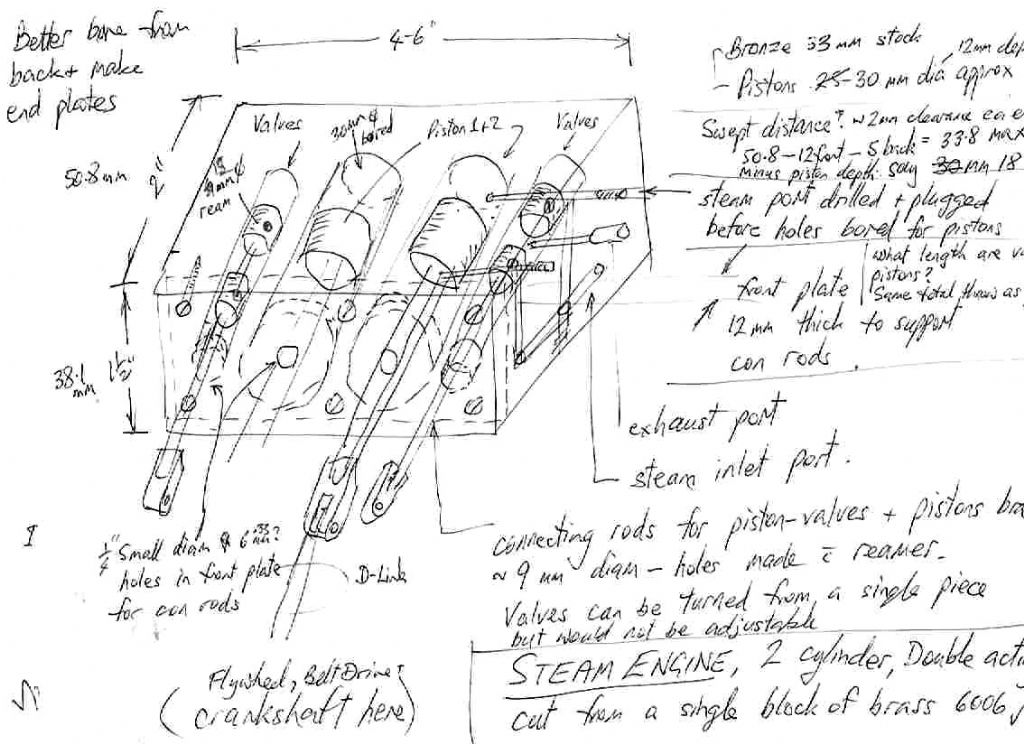 Better bore from
back + make
end plates
4-6"
Bronze 33 mm stock
12mm dep
- Pistons 25-30 mm dia approx
Swept distance? w 2mm clearance ea e
50.8-12 front - 5 back = 33.8 max
minus piston depth: say 30 mm 18
steam port drilled + plugged
before holes bored for pistons
What length are va
pistons?
Same total throw as
front plate
12 mm thick to support
con rods.
Valves
30mm ϕ
bored
Piston 1+2
Valves
9mm ϕ
ream
50.8 mm
2"
38.1
mm
1½"
exhaust port
steam inlet port.
connecting rods for piston-valves + pistons bra
~ 9 mm diam - holes made c̄ reamer.
Valves can be turned from a single piece
but would not be adjustable
¼" Small diam ϕ 6
holes in front plate
for con rods
D-Link
Flywheel, Belt Drive?
(crankshaft here)
STEAM ENGINE, 2 cylinder, Double actu
cut from a single block of brass 6006